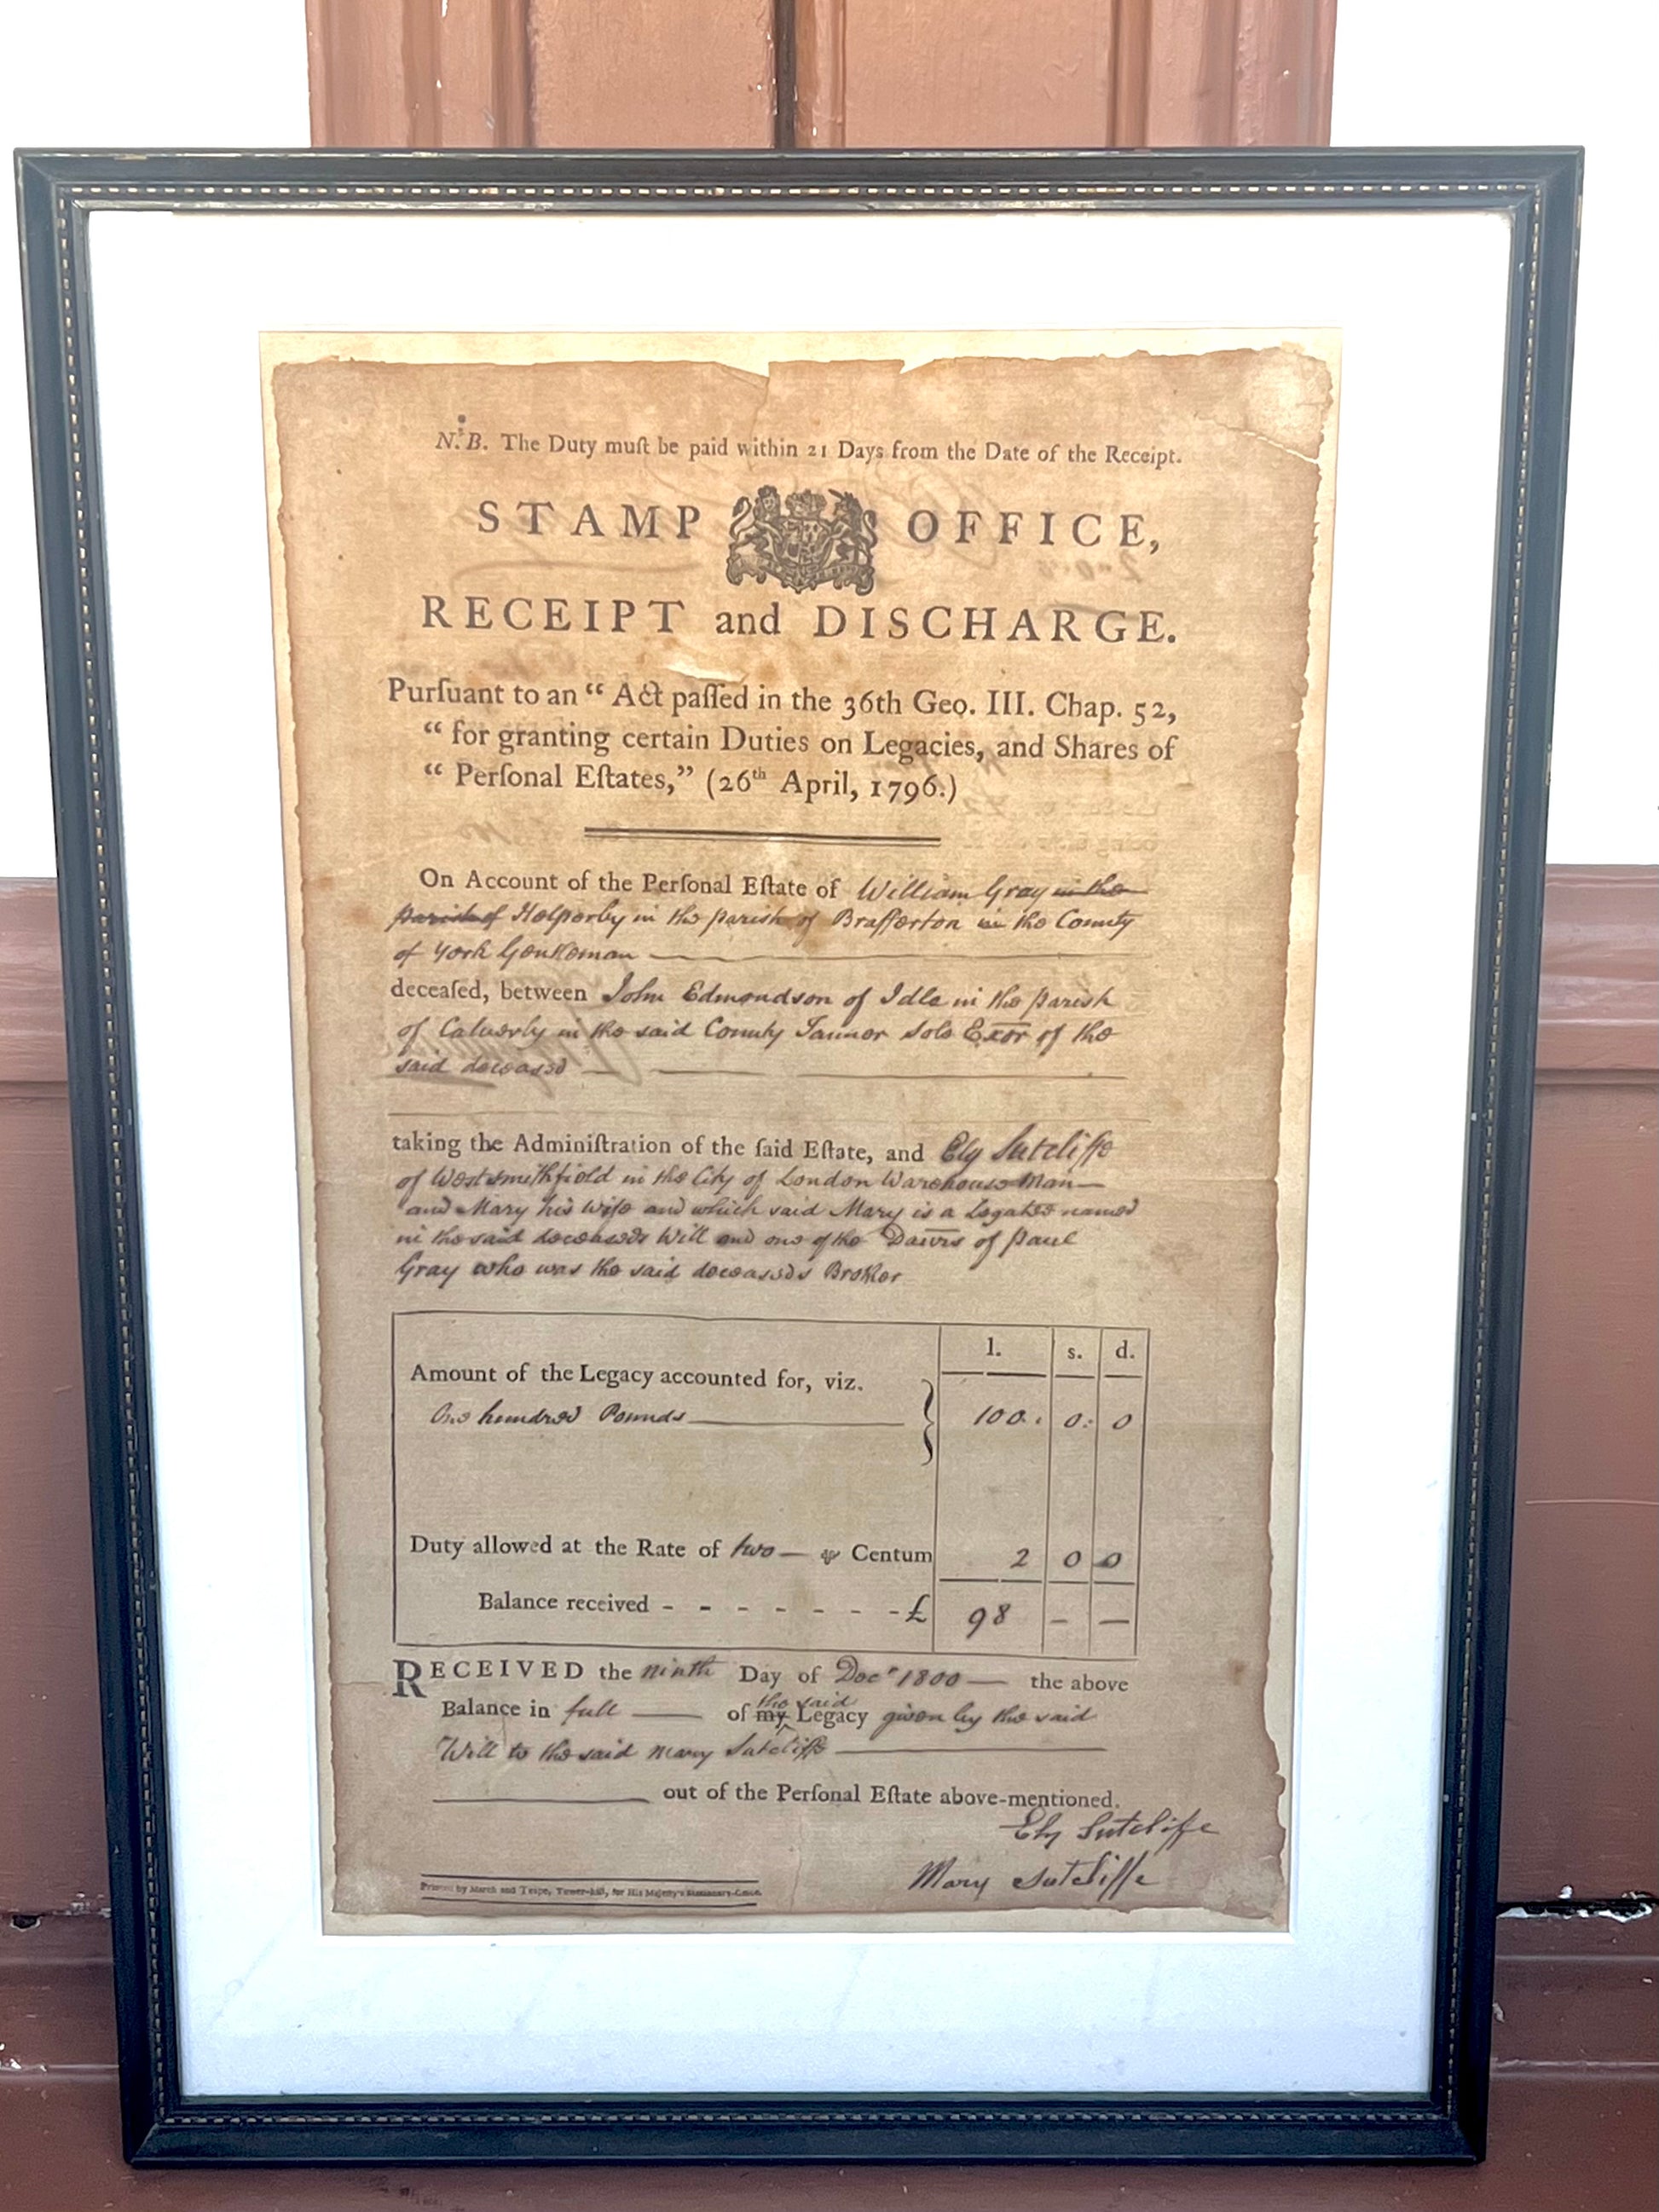 N.B. The Duty muſt be paid within 21 Days from the Date of the Receipt.
STAMP OFFICE,
RECEIPT and DISCHARGE.
Purſuant to an “ Act paſſed in the 36th Geo. III. Chap. 52,
“ for granting certain Duties on Legacies, and Shares of
“ Perſonal Eſtates,” (26th April, 1796.)
On Account of the Perſonal Eſtate of William Gray in the
parish of Helperby in the parish of Brafferton in the County
of York Gentleman
deceaſed, between John Edmondson of Idle in the parish
of Calverly in the said County Tanner Sole Exor of the
said deceased
taking the Adminiſtration of the ſaid Eſtate, and Ely Sutcliffe
of Westsmithfield in the City of London Warehouse Man
and Mary his Wife and which said Mary is a Legatee named
in the said deceaseds Will and one of the Dau'rs of Paul
Gray who was the said deceaseds Brother
l. s. d.
Amount of the Legacy accounted for, viz.
One hundred Pounds 100. 0. 0
Duty allowed at the Rate of two — Centum 2 0 0
Balance received - - - - - - - £ 98 — —
RECEIVED the ninth Day of Decr 1800 — the above
the said
Balance in full of my Legacy given by the said
Will to the said Mary Sutcliffe
out of the Perſonal Eſtate above-mentioned.
Ely Sutcliffe
Mary Sutcliffe
Printed by March and Teape, Tower-hill, for His Majeſty's Stationary-Office.